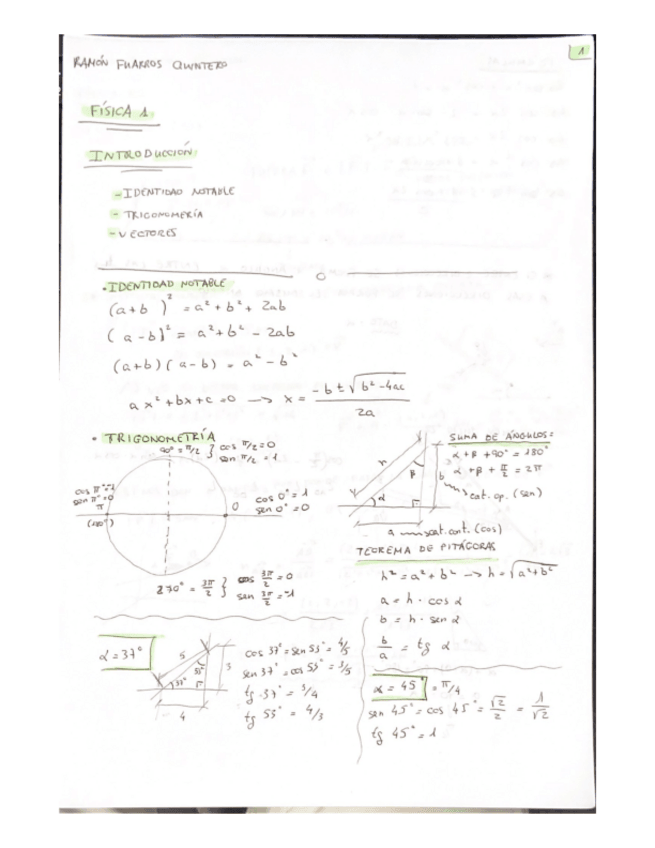 1
RAMÓN FUARROS QUINTERO
FÍSICA 1
INTRODUCCIÓN
- IDENTIDAD NOTABLE
- TRIGONOMERÍA
- VECTORES
• IDENTIDAD NOTABLE
(a+b)² = a² + b² + 2ab
(a-b)² = a² + b² - 2ab
(a+b)(a-b) = a² - b²
ax² + bx + c = 0 → x = (-b ± √(b² - 4ac)) / 2a
• TRIGONOMETRÍA
90° = π/2 } cos π/2 = 0
sen π/2 = 1
cos π = -1
sen π = 0
π
(180°)
0
cos 0° = 1
sen 0° = 0
270° = 3π/2 } cos 3π/2 = 0
sen 3π/2 = -1
SUMA DE ÁNGULOS:
α + β + 90° = 180°
α + β + π/2 = 2π
r
β
b
α
cat. op. (sen)
a cat. cont. (cos)
TEOREMA DE PITÁGORAS
h² = a² + b² → h = √(a² + b²)
a = h · cos α
b = h · sen α
b/a = tg α
α = 37°
5
53°
37°
3
4
cos 37° = sen 53° = 4/5
sen 37° = cos 53° = 3/5
tg 37° = 3/4
tg 53° = 4/3
α = 45° = π/4
sen 45° = cos 45° = √2/2 = 1/√2
tg 45° = 1